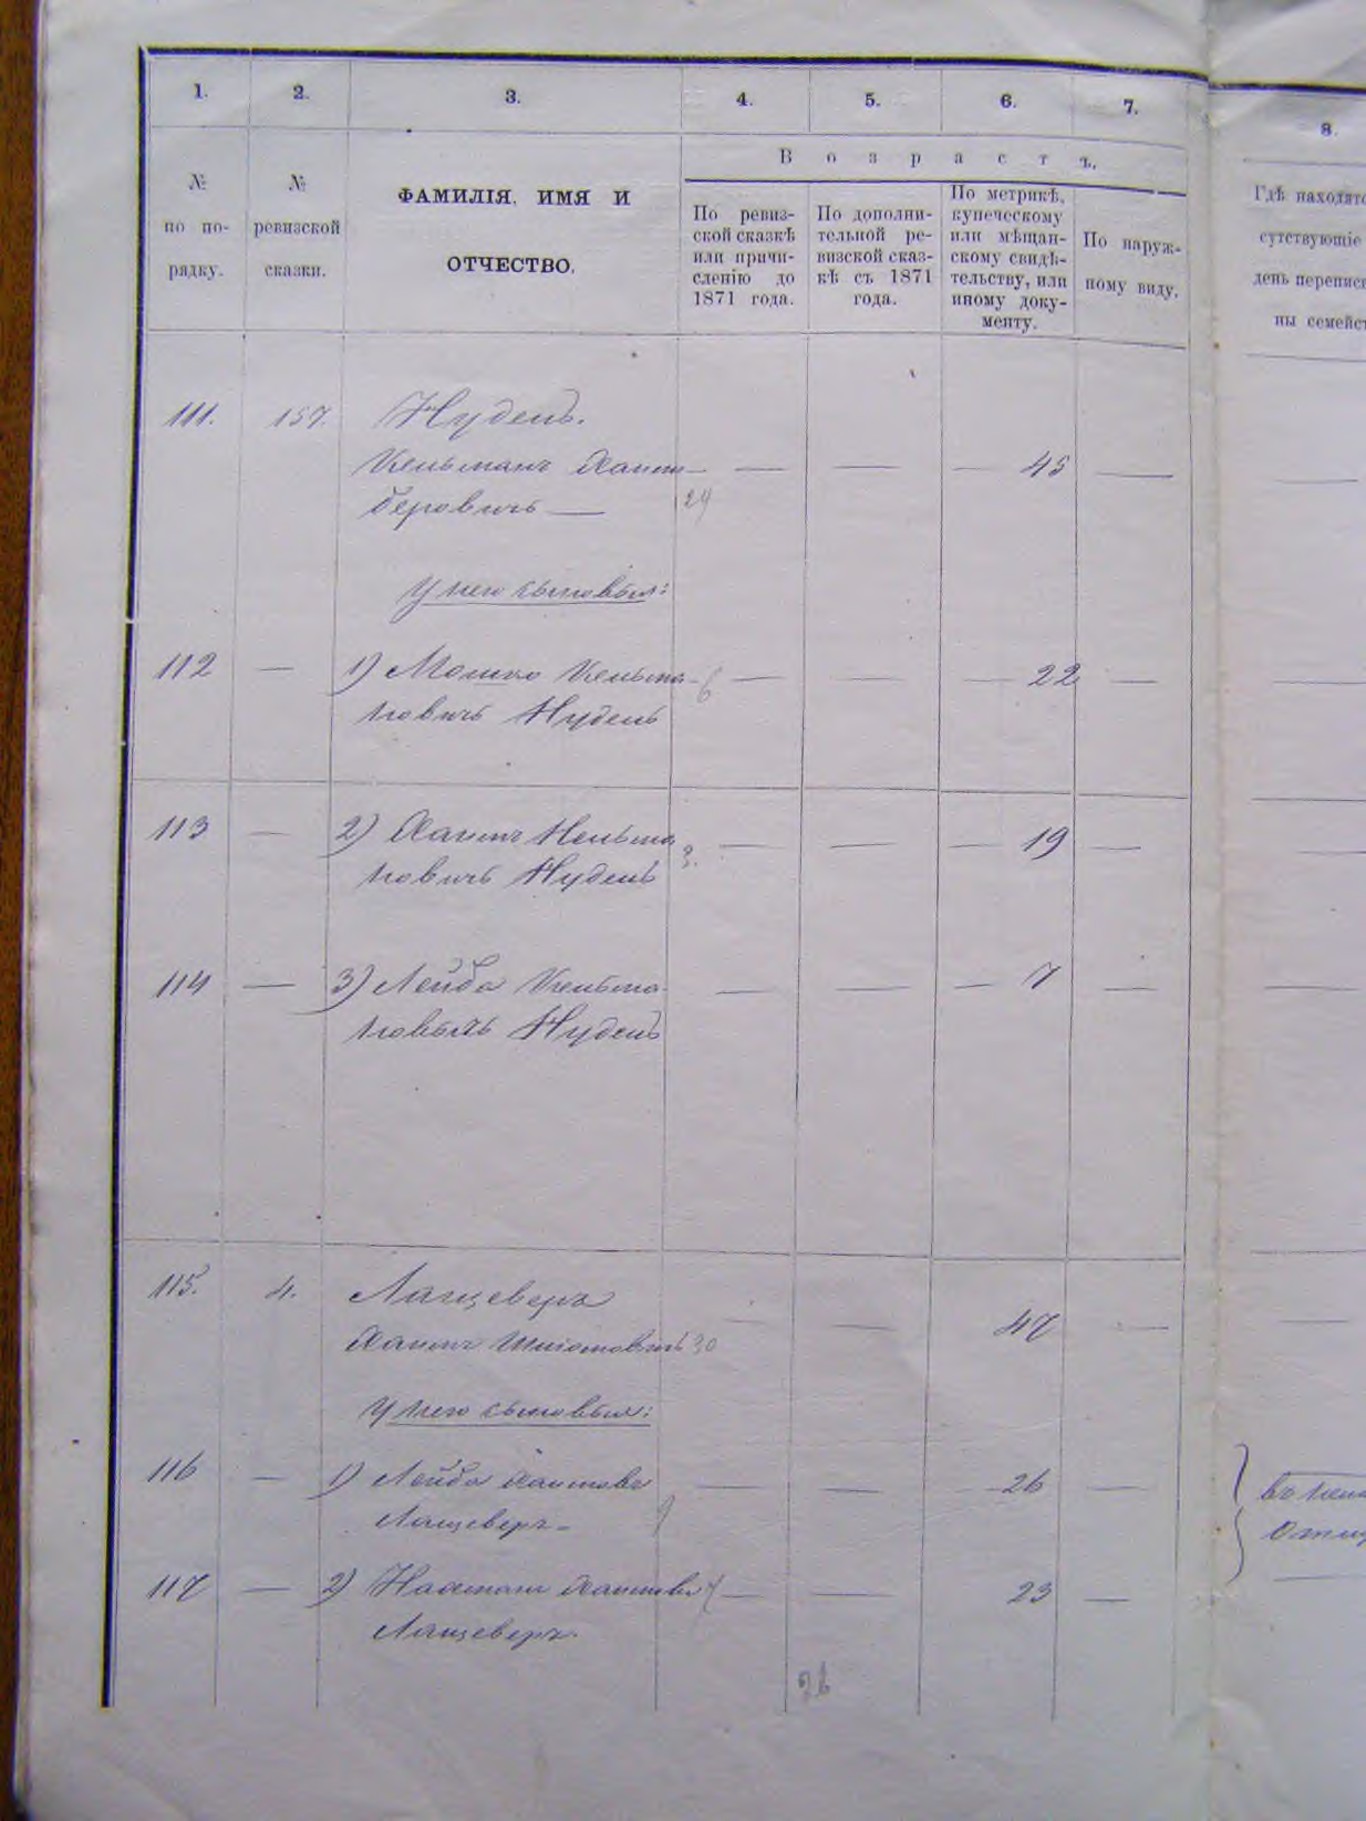 1. 2. 3. 4. 5. 6. 7. 8.
Возрастъ.
№ по по-рядку.
№ ревизской сказки.
ФАМИЛІЯ, ИМЯ И
ОТЧЕСТВО.
По ревиз-
ской сказкѣ
или причи-
сленію до
1871 года.
По дополни-
тельной ре-
визской сказ-
кѣ съ 1871
года.
По метрикѣ,
купеческому
или мѣщан-
скому свидѣ-
тельству, или
иному доку-
менту.
По наруж-
ному виду.
Гдѣ находятс
сутствующіе
день перепис
ны семейст
111. 157. Нудель.
Кельманъ Хаим — — — 45 —
беровичъ — 24
У него сыновья:
112 — 1) Мошко Кельма- 6 — — — 22 —
новичъ Нудель
113 — 2) Хаимъ Кельма 3. — — — 19 —
новичъ Нудель
114 — 3) Лейба Кельма- — — — 7 —
новичъ Нудель
115. 4. Ланцеверъ
Хаимъ 30 — — 47 —
У него сыновья:
116 — 1) Лейба Хаимовъ — — — 26 —
Ланцеверъ - 9
117 — 2) Хаимовъ — — 23 —
Ланцеверъ